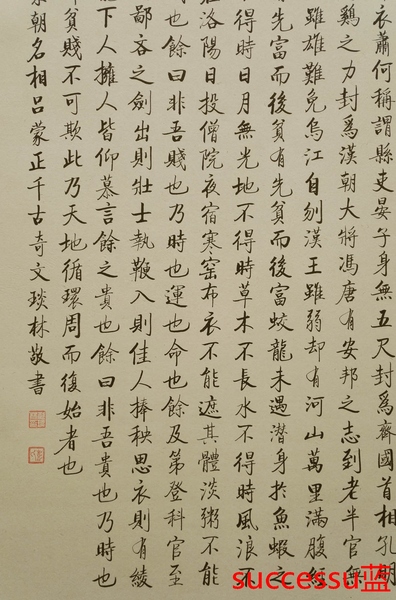 衣蕭何稱謂縣吏晏子身無五尺封爲齊國首相孔明
雞之力封爲漢朝大將馮唐有安邦之志到老半官無
雖雄難免烏江自刎漢王雖弱却有河山萬里滿腹經
先富而後貧有先貧而後富蛟龍未遇潛身於魚蝦之
不得時日月無光地不得時草木不長水不得時風浪不
在洛陽日投僧院夜宿寒窑布衣不能遮其體淡粥不能
也餘曰非吾賤也乃時也運也命也餘及第登科官至
鄙吝之劍出則壯士執鞭入則佳人捧秧思衣則有綾
下人擁人皆仰慕言餘之貴也餘曰非吾貴也乃時也
貧賤不可欺此乃天地循環周而復始者也
朝名相吕蒙正千古奇文琰林敬書
successu蓝